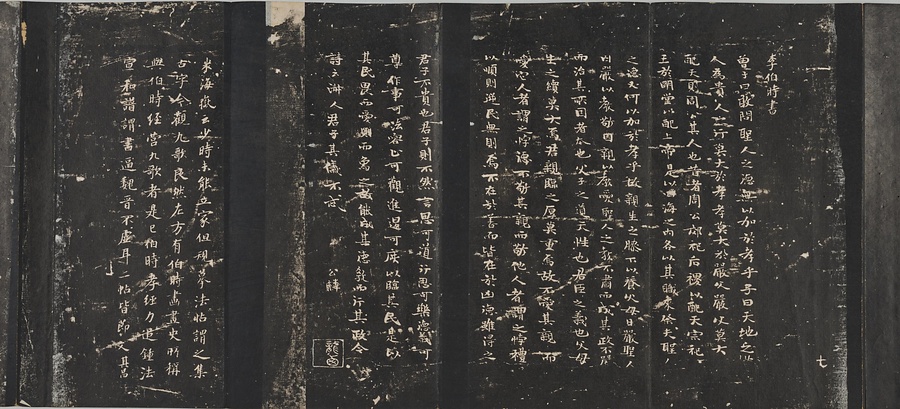 七
李伯時書
曾子曰敢問聖人之德無以加於孝乎子曰天地之性
人為貴人之行莫大於孝孝莫大於嚴父嚴父莫大
配天則周公其人也昔者周公郊祀后稷以配天宗祀文
王於明堂以配上帝是以四海之內各以其職來祭夫聖人
之德又何以加於孝乎故親生之膝下以養父母日嚴聖人
因嚴以教敬因親以教愛聖人之教不肅而成其政不嚴
而治其所因者本也父子之道天性也君臣之義也父母
生之續莫大焉君親臨之厚莫重焉故不愛其親而
愛他人者謂之悖德不敬其親而敬他人者謂之悖禮
以順則逆民無則焉不在於善而皆在於凶德雖得之
君子不貴也君子則不然言思可道行思可樂德義可
尊作事可法容止可觀進退可度以臨其民是以
其民畏而愛之則而象之故能成其德教而行其政令
詩云淑人君子其儀不忒 公麟
米海嶽云少時未能立家但規摹法帖謂之集
古字今觀九歌良然左方有伯時畫畫史所稱
與伯時經營九歌者是已伯時孝經力追鍾法
宣和譜謂書逼魏晉不虛耳二帖皆 其昌